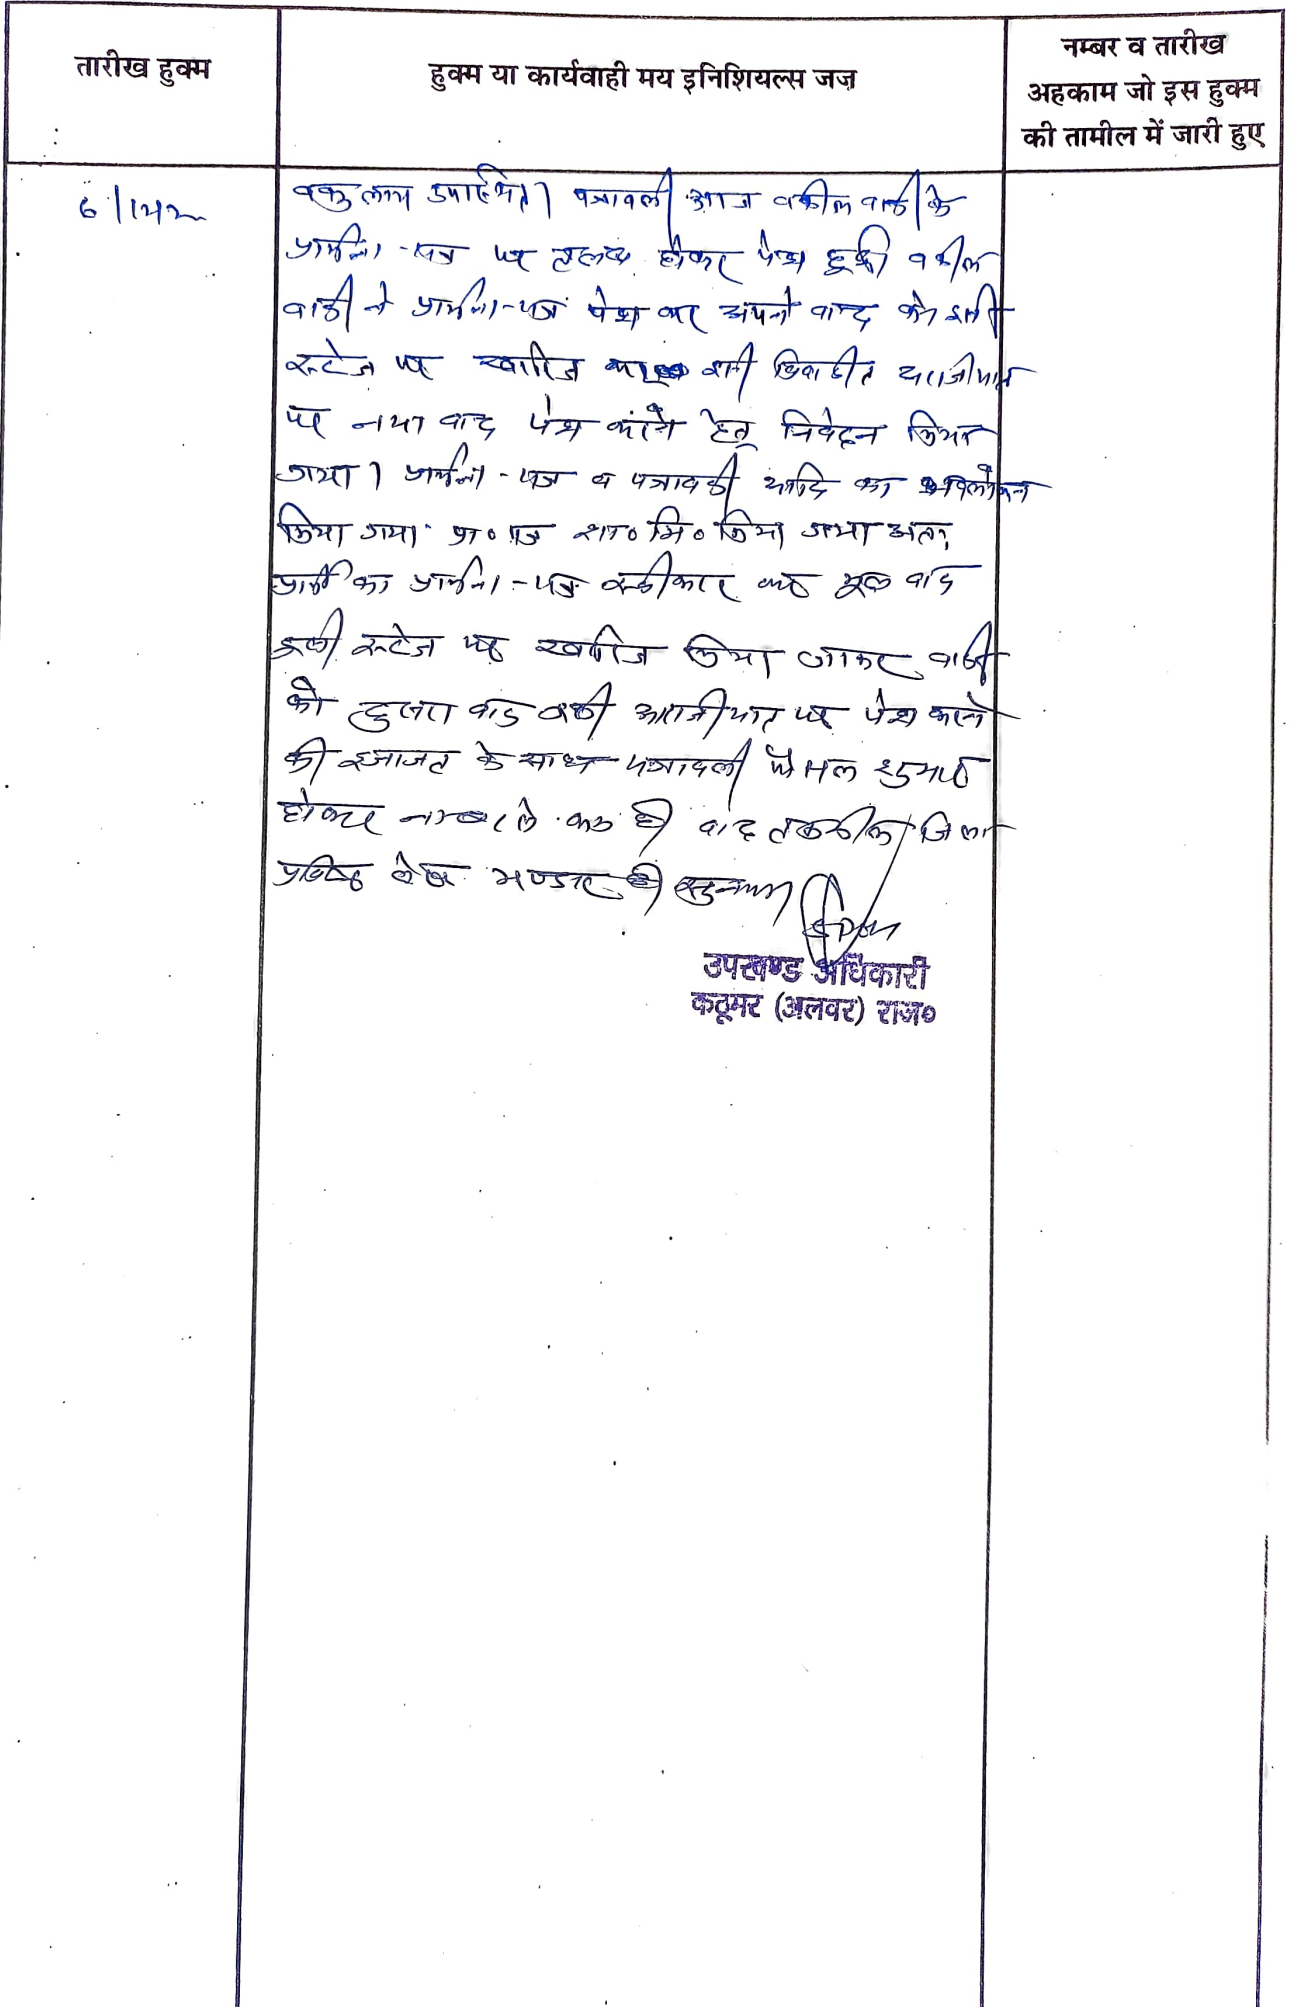 तारीख हुक्म
हुक्म या कार्यवाही मय इनिशियल्स जज
नम्बर व तारीख
अहकाम जो इस हुक्म
की तामील में जारी हुए
वकुलाय उपस्थित। पत्रावली आज वकील वादी के
प्रार्थना-पत्र पर तलब होकर पेश हुई। वकील
वादी ने प्रार्थना-पत्र पेश कर अपने वाद को इसी
स्टेज पर खारिज कर इसी विवादित आराजीयात
पर नया वाद पेश करने हेतू निवेदन किया
गया। प्रार्थना-पत्र व पत्रावली आदि का अवलोकन
किया गया प्रा० पत्र शा० मि० किया गया अतः
प्रार्थी का प्रार्थना-पत्र स्वीकार कर मूल वाद
इसी स्टेज पर खारिज किया जाकर वादी
को दुसरा वाद इसी आराजीयात पर पेश करने
की इजाजत के साथ पत्रावली फैसल शुमार
होकर नम्बर से कम हो वाद तकमील जिला
लेख भण्डार हो
उपखण्ड अधिकारी
कठूमर (अलवर) राज०